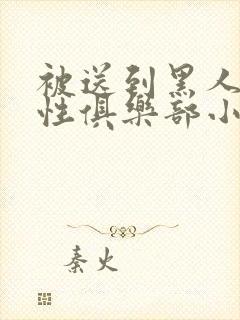 被送到黑人
性俱樂部小
秦火